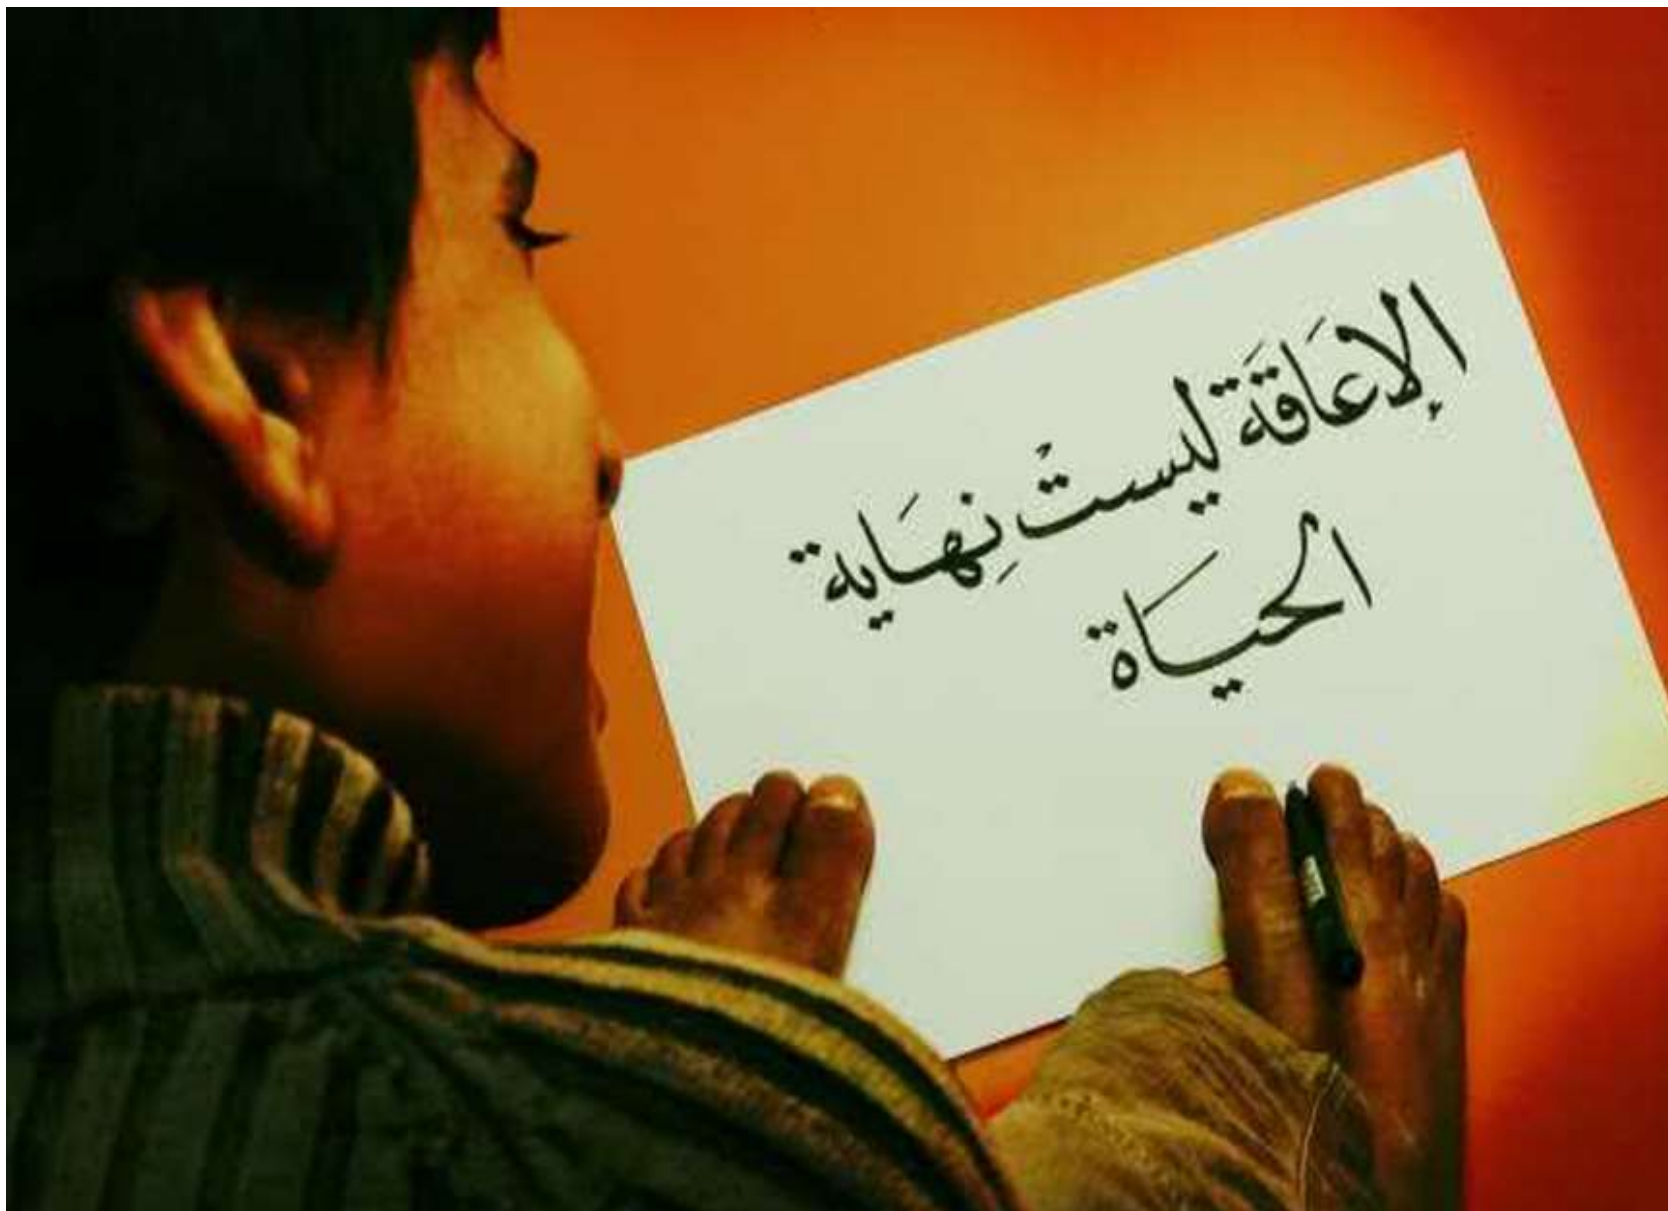 الإعَاقَة ليستْ نِهَاية
الحيَاة